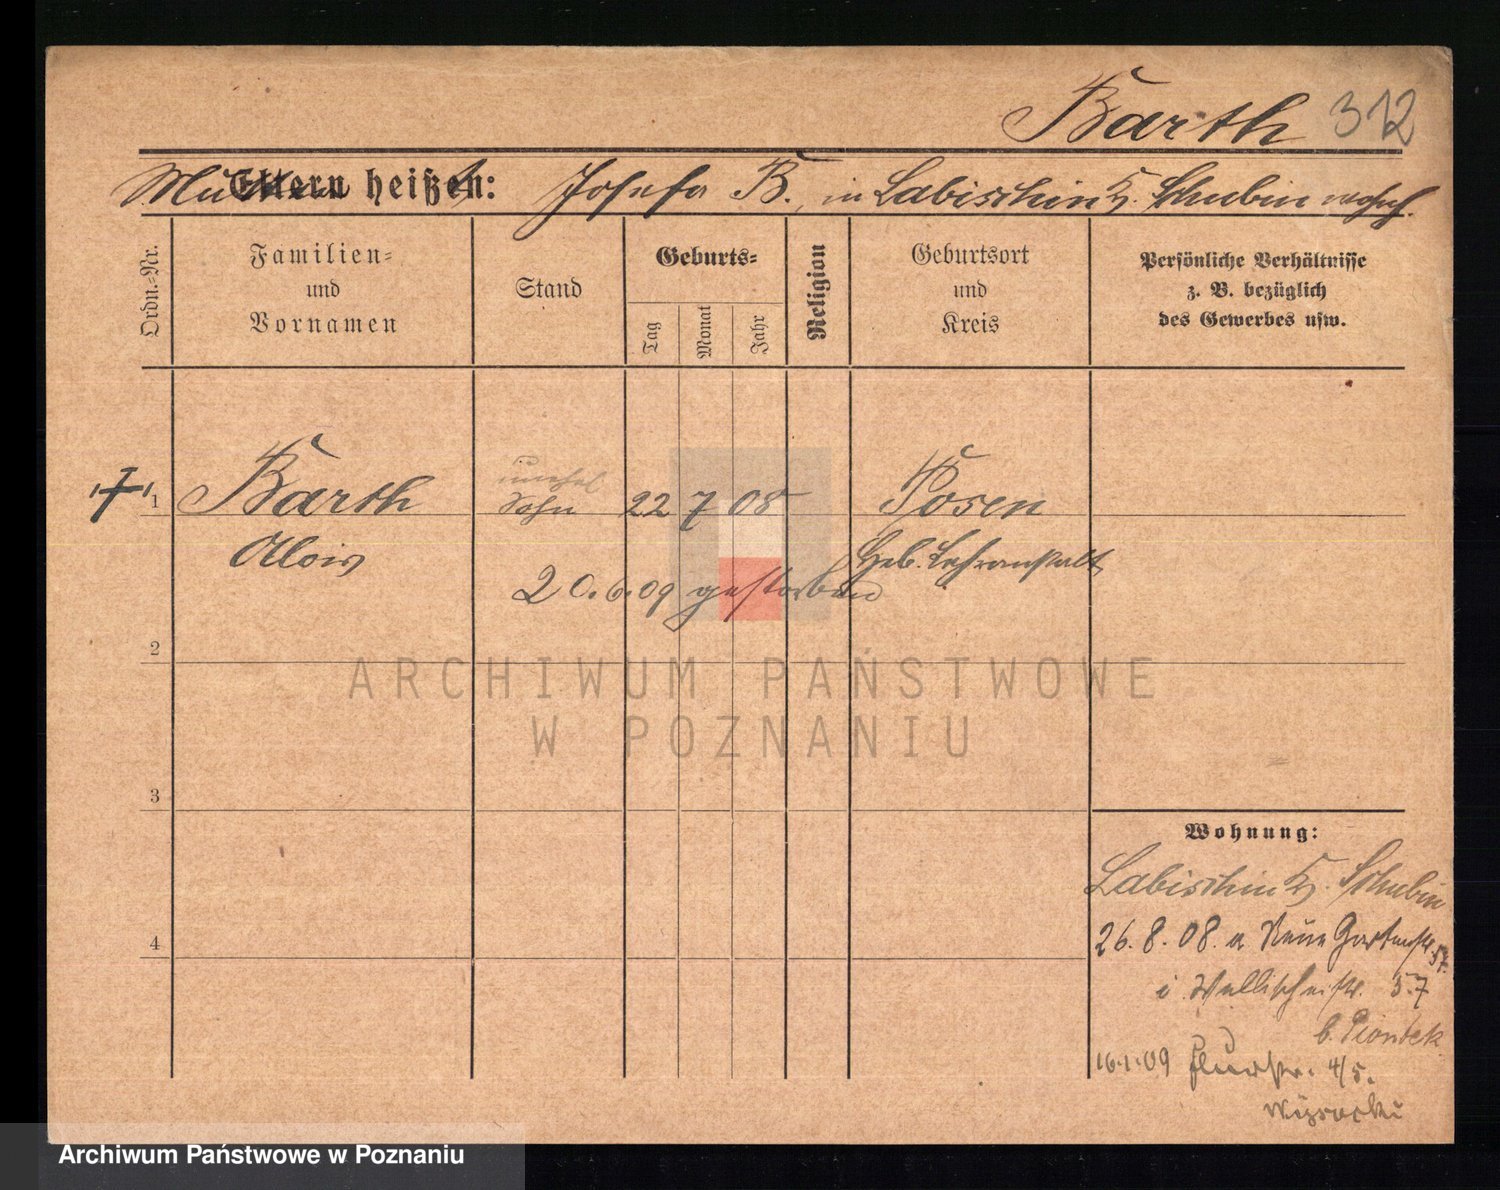 Barth 312
Mutter heißt: Josefa B. in Labischin Kr. Schubin wohnh.
Ordn.-Nr.
Familien- und Vornamen
Stand
Geburts-
Tag
Monat
Jahr
Religion
Geburtsort und Kreis
Persönliche Verhältnisse
z. B. bezüglich
des Gewerbes usw.
† 1 Barth Sohn 22 7 08 Posen
Alois Heb. Lehranstalt
20.6.09 gestorben
2
3
4
Wohnung:
Labischin Kr. Schubin
26.8.08. a Neue Gartenstr. 57.
i Wallischeistr. 57
b. Piontek
16.1.09 Flurstr. 4/5.
Wysocki
ARCHIWUM PAŃSTWOWE
W POZNANIU
Archiwum Państwowe w Poznaniu